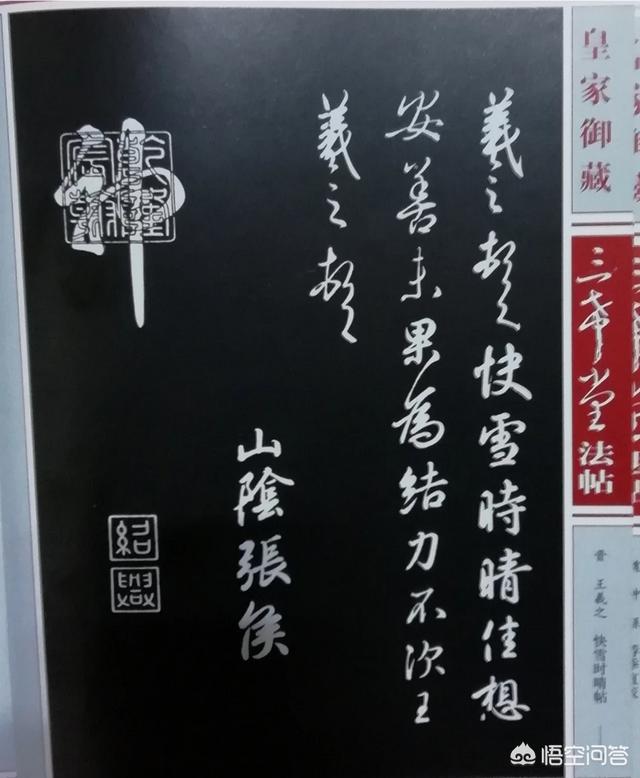 羲之頓首快雪時晴佳想
安善未果為結力不次王
羲之頓首
山陰張侯
神
皇家御藏
三希堂法帖
晋 王羲之 快雪时晴帖
悟空问答